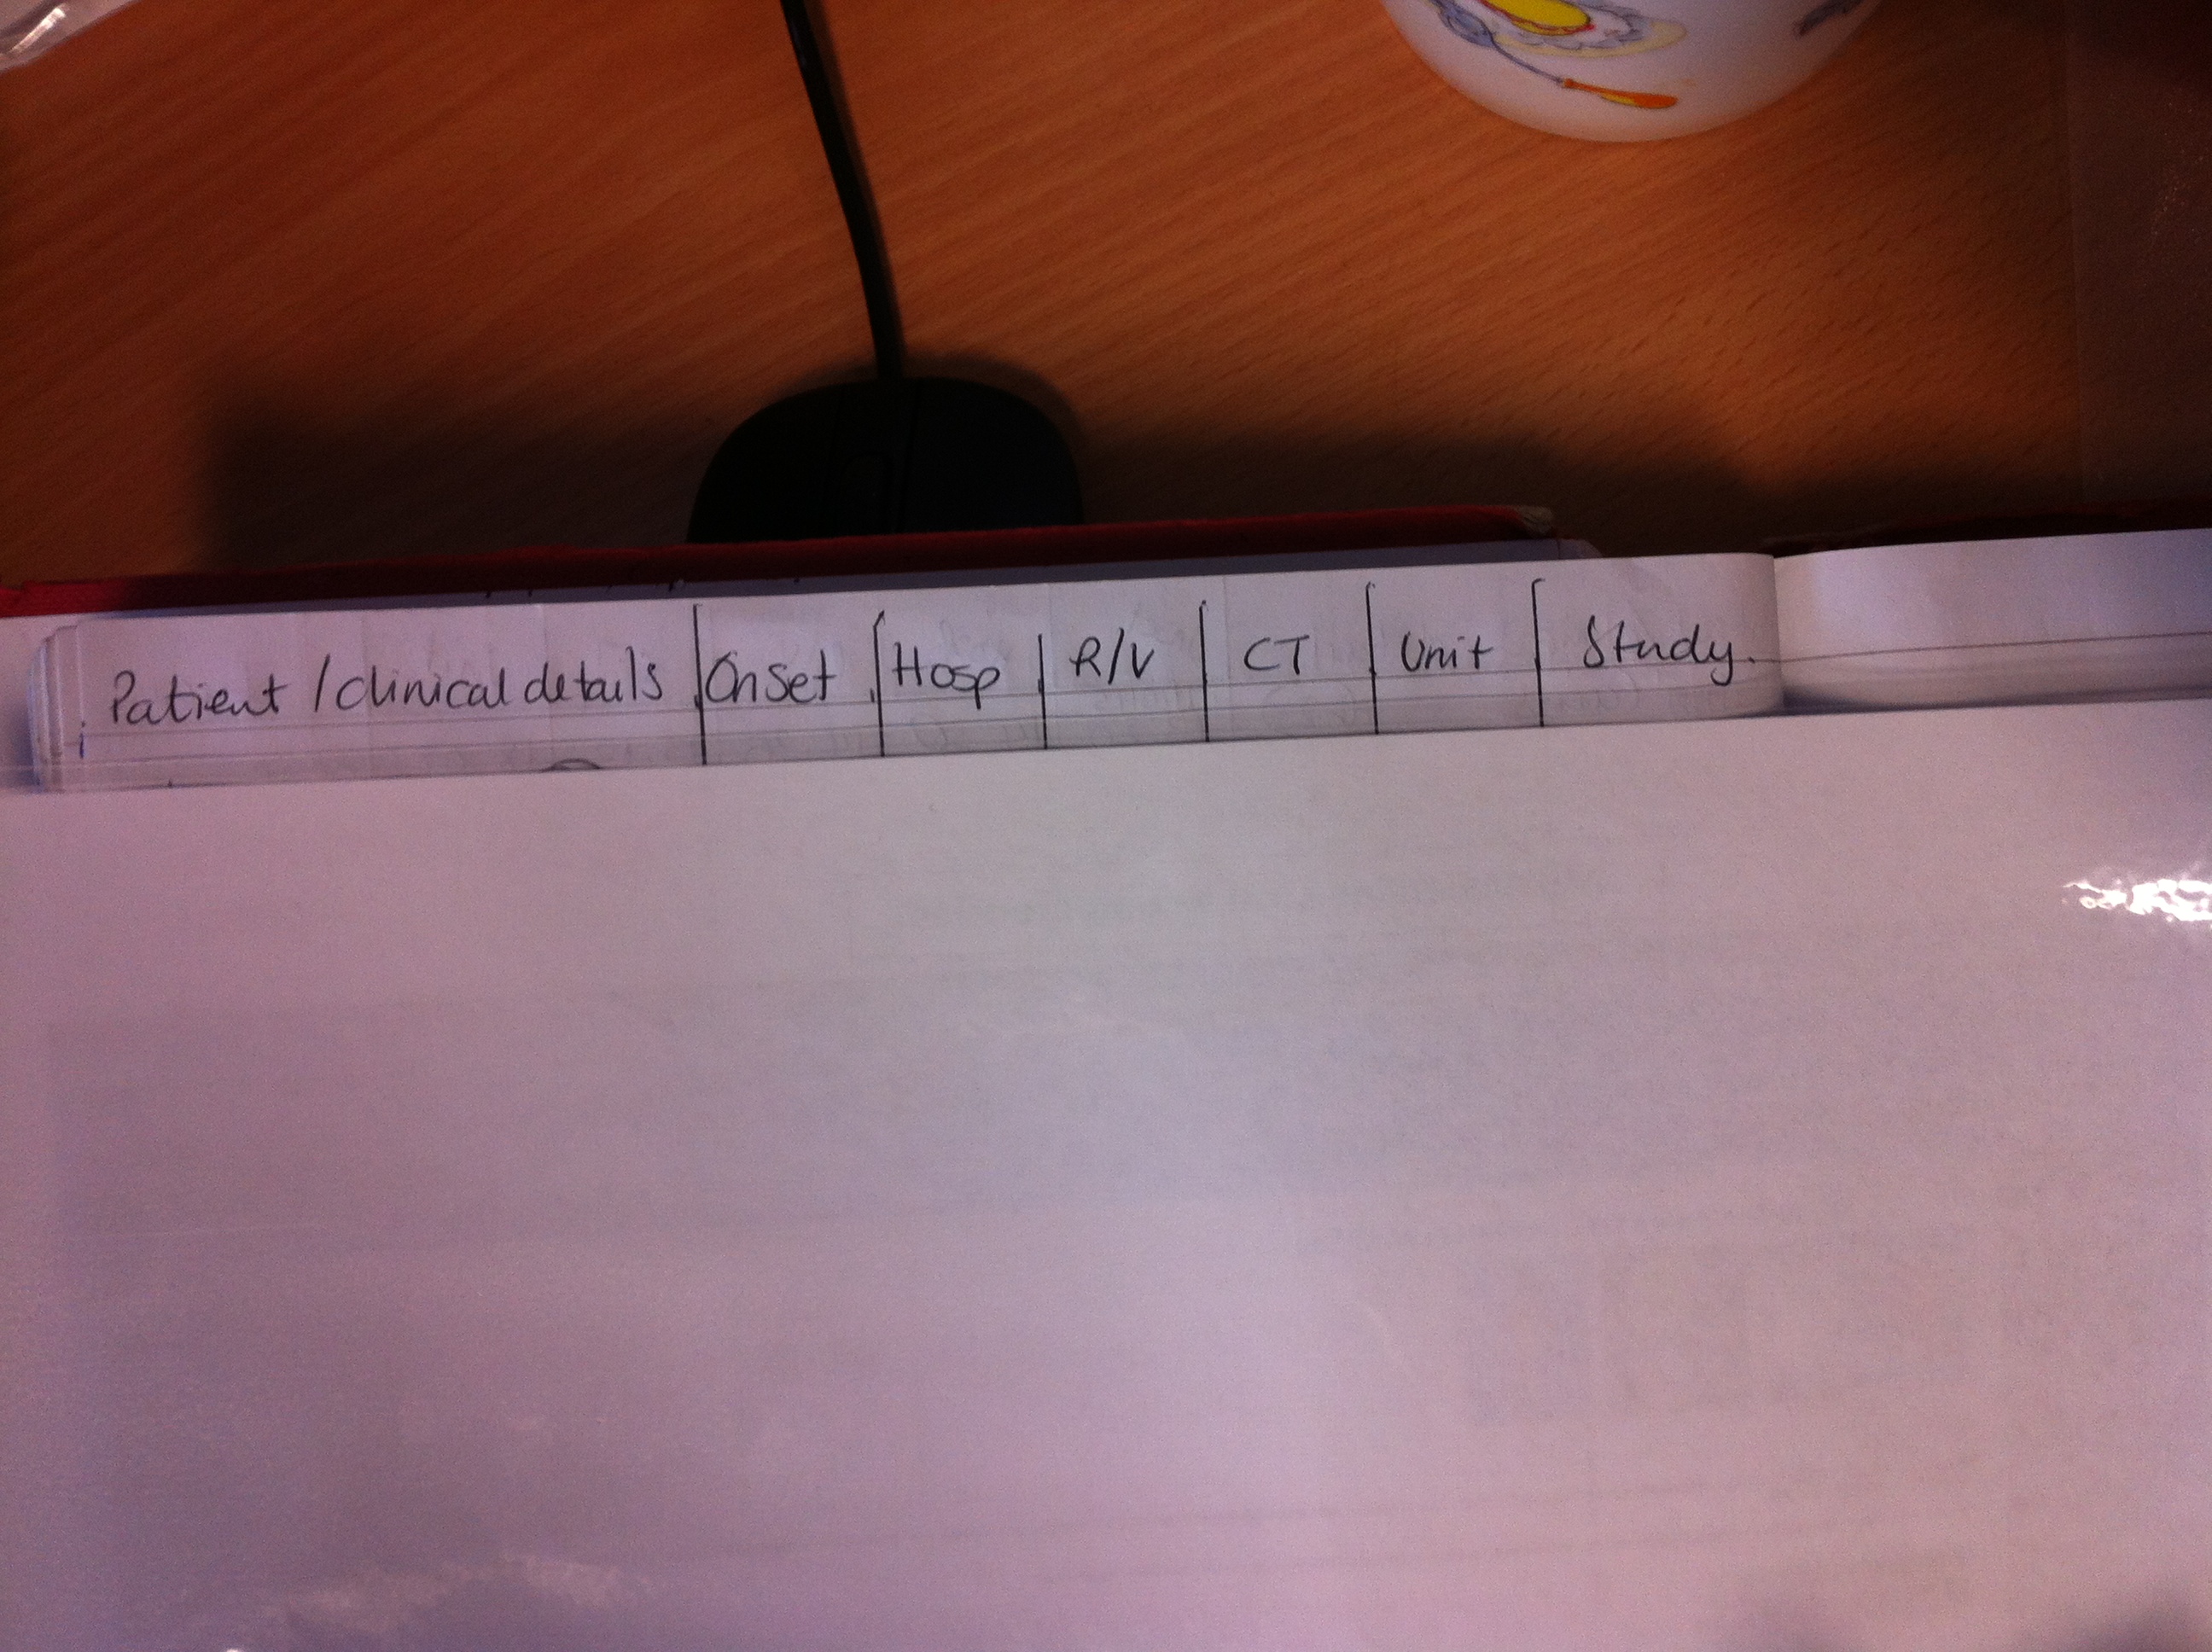 Patient / clinical details | Onset | Hosp | R/V | CT | Unit | Study.